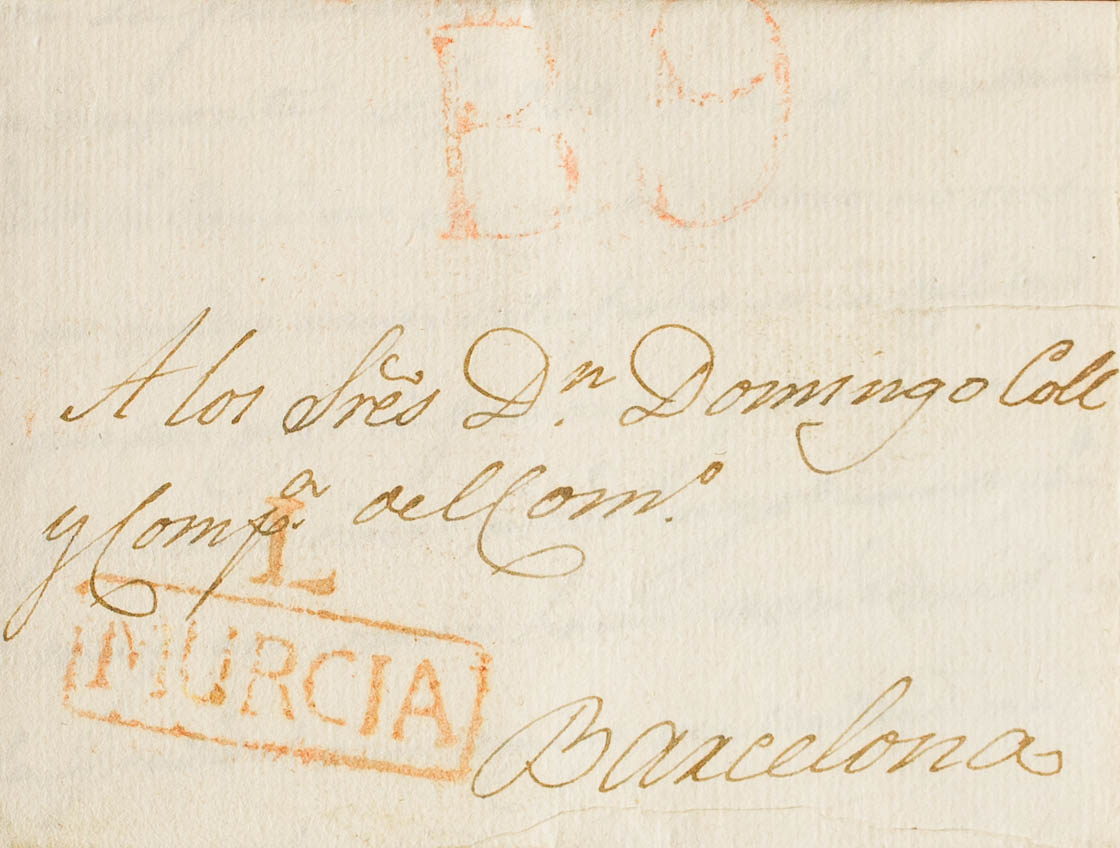 B 9
A los Sr̃es Dⁿ. Domingo Coll
y Compᵃ. del Comᵒ.
L
MURCIA
Barcelona